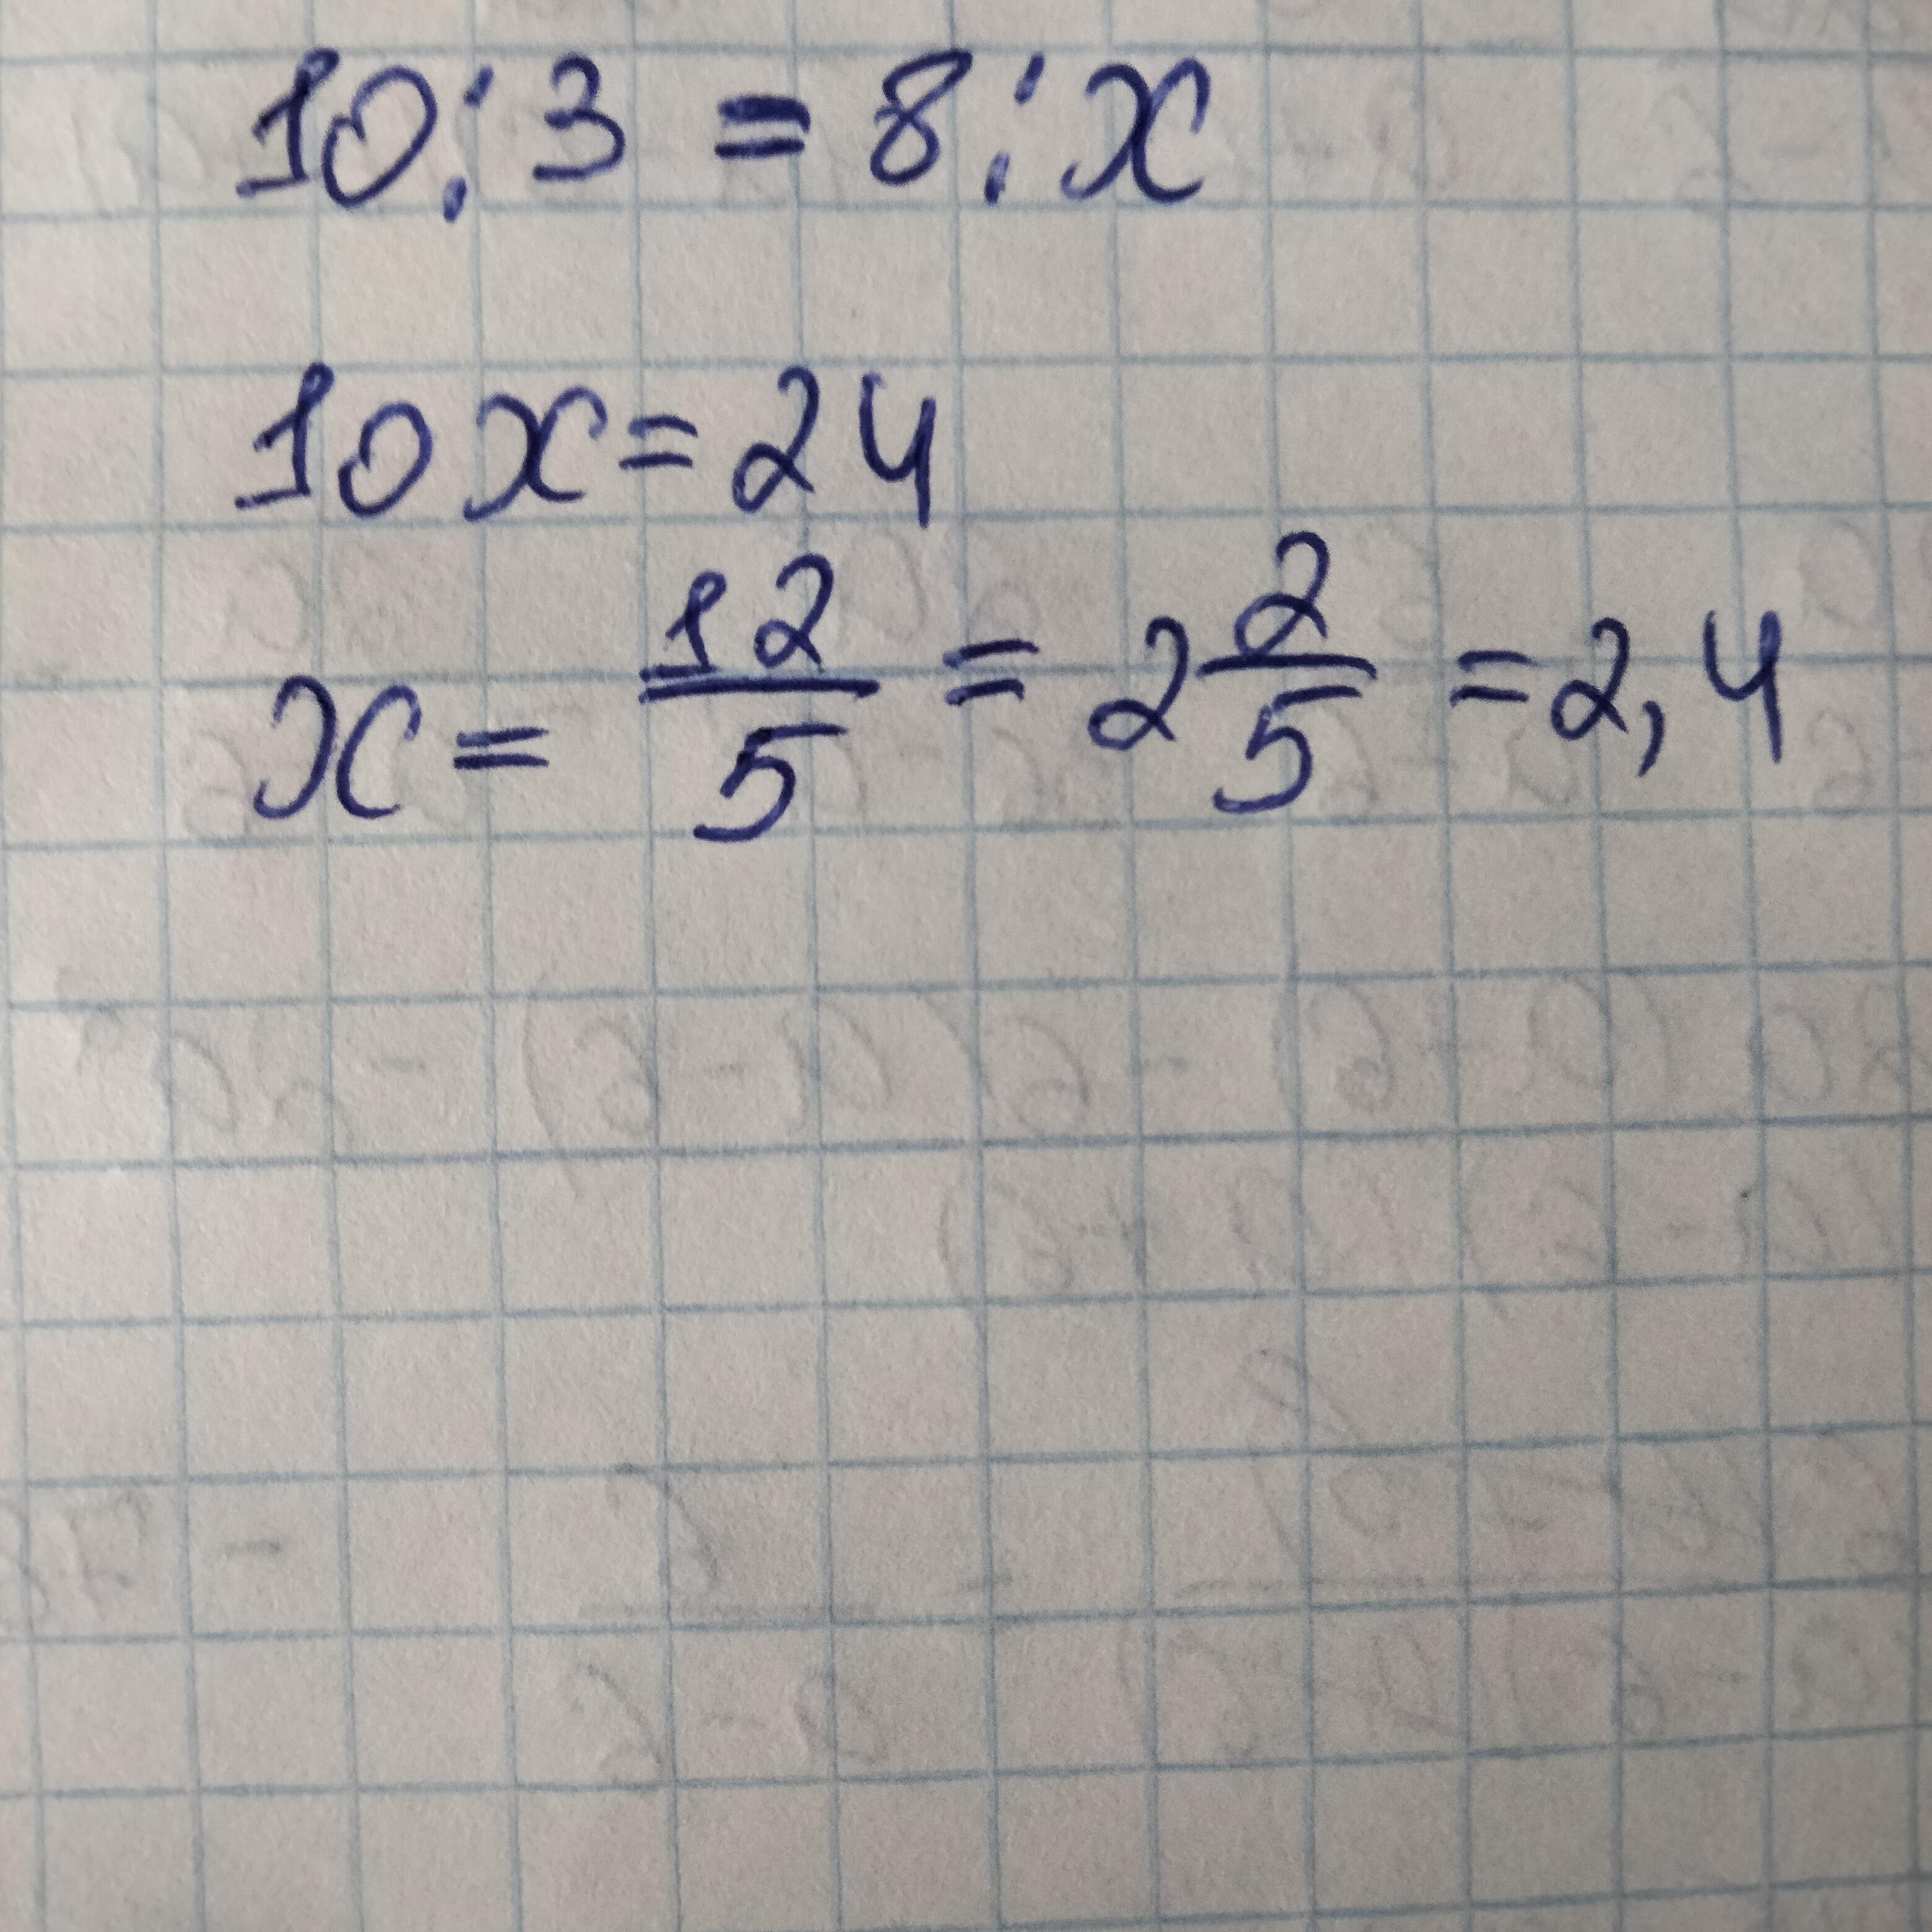 10 : 3 = 8 : x
10x = 24
x = 12/5 = 2 2/5 = 2,4